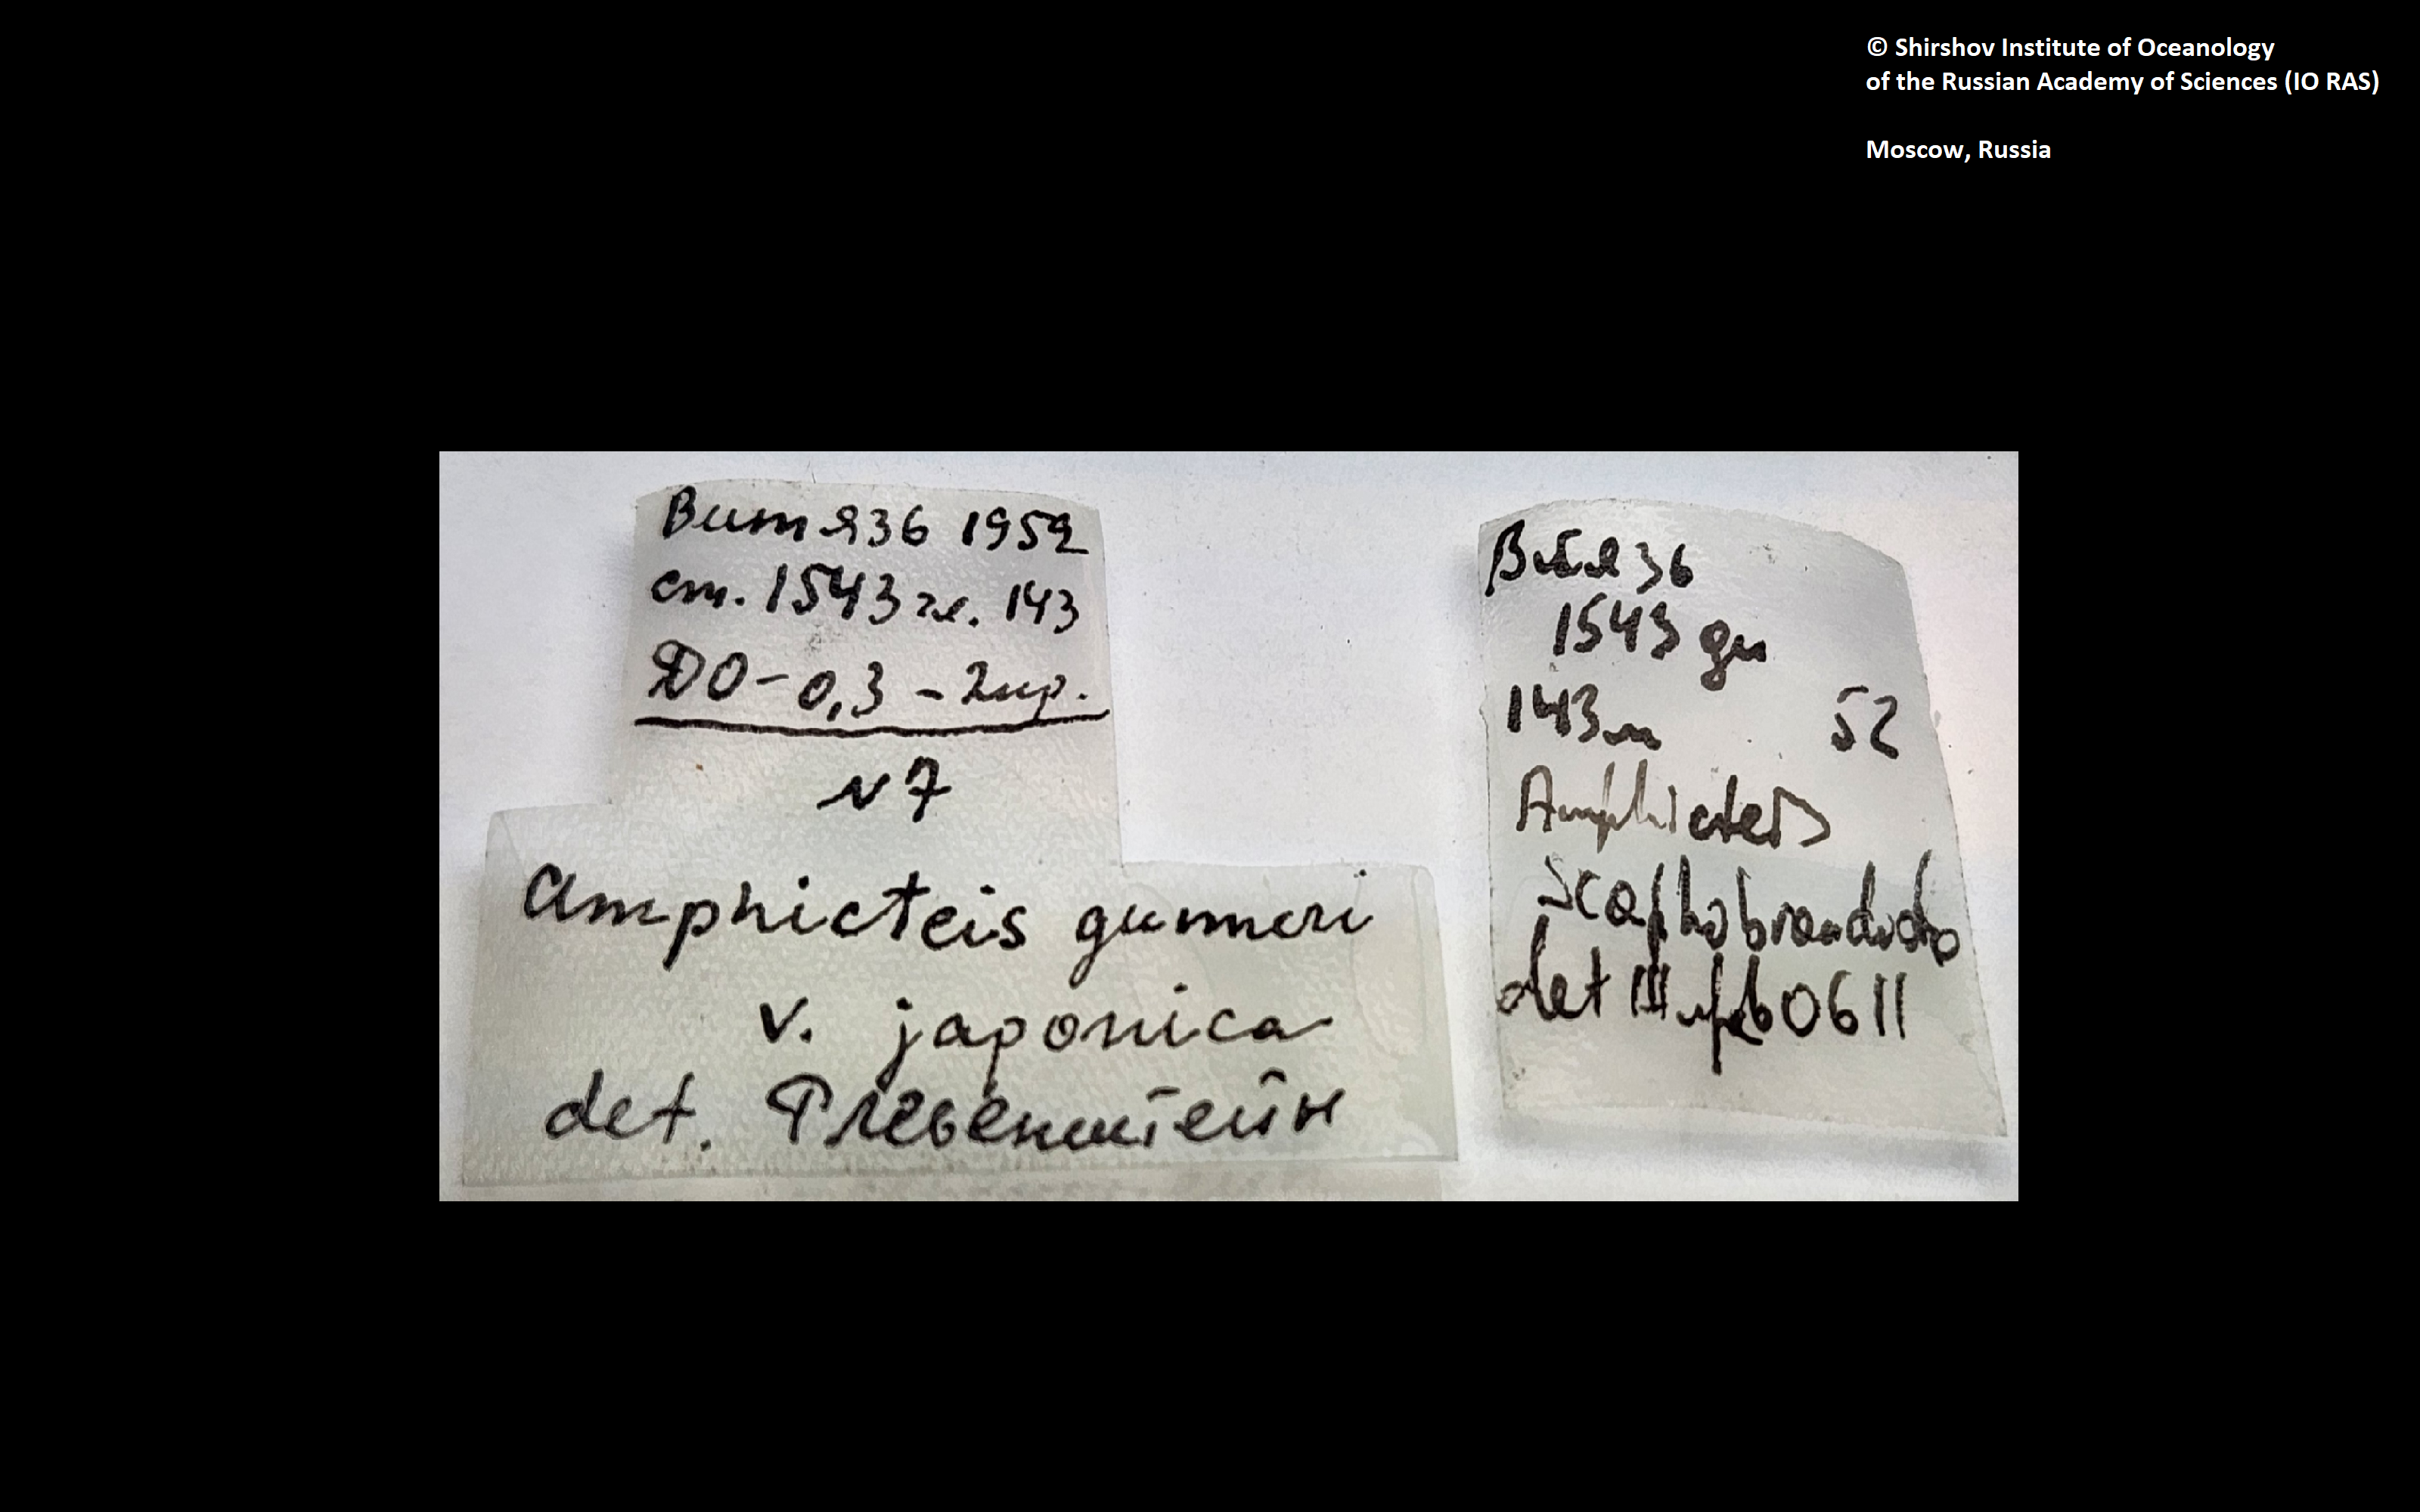 © Shirshov Institute of Oceanology
of the Russian Academy of Sciences (IO RAS)
Moscow, Russia
Витязь 1952
ст. 1543 гл. 143
ДО-0,3 - 2пр.
N 7
Amphicteis gunneri
v. japonica
det. Левенштейн
Витязь
1543 дн
143м 52
Amphicteis
scaphobranchiata
det 0611